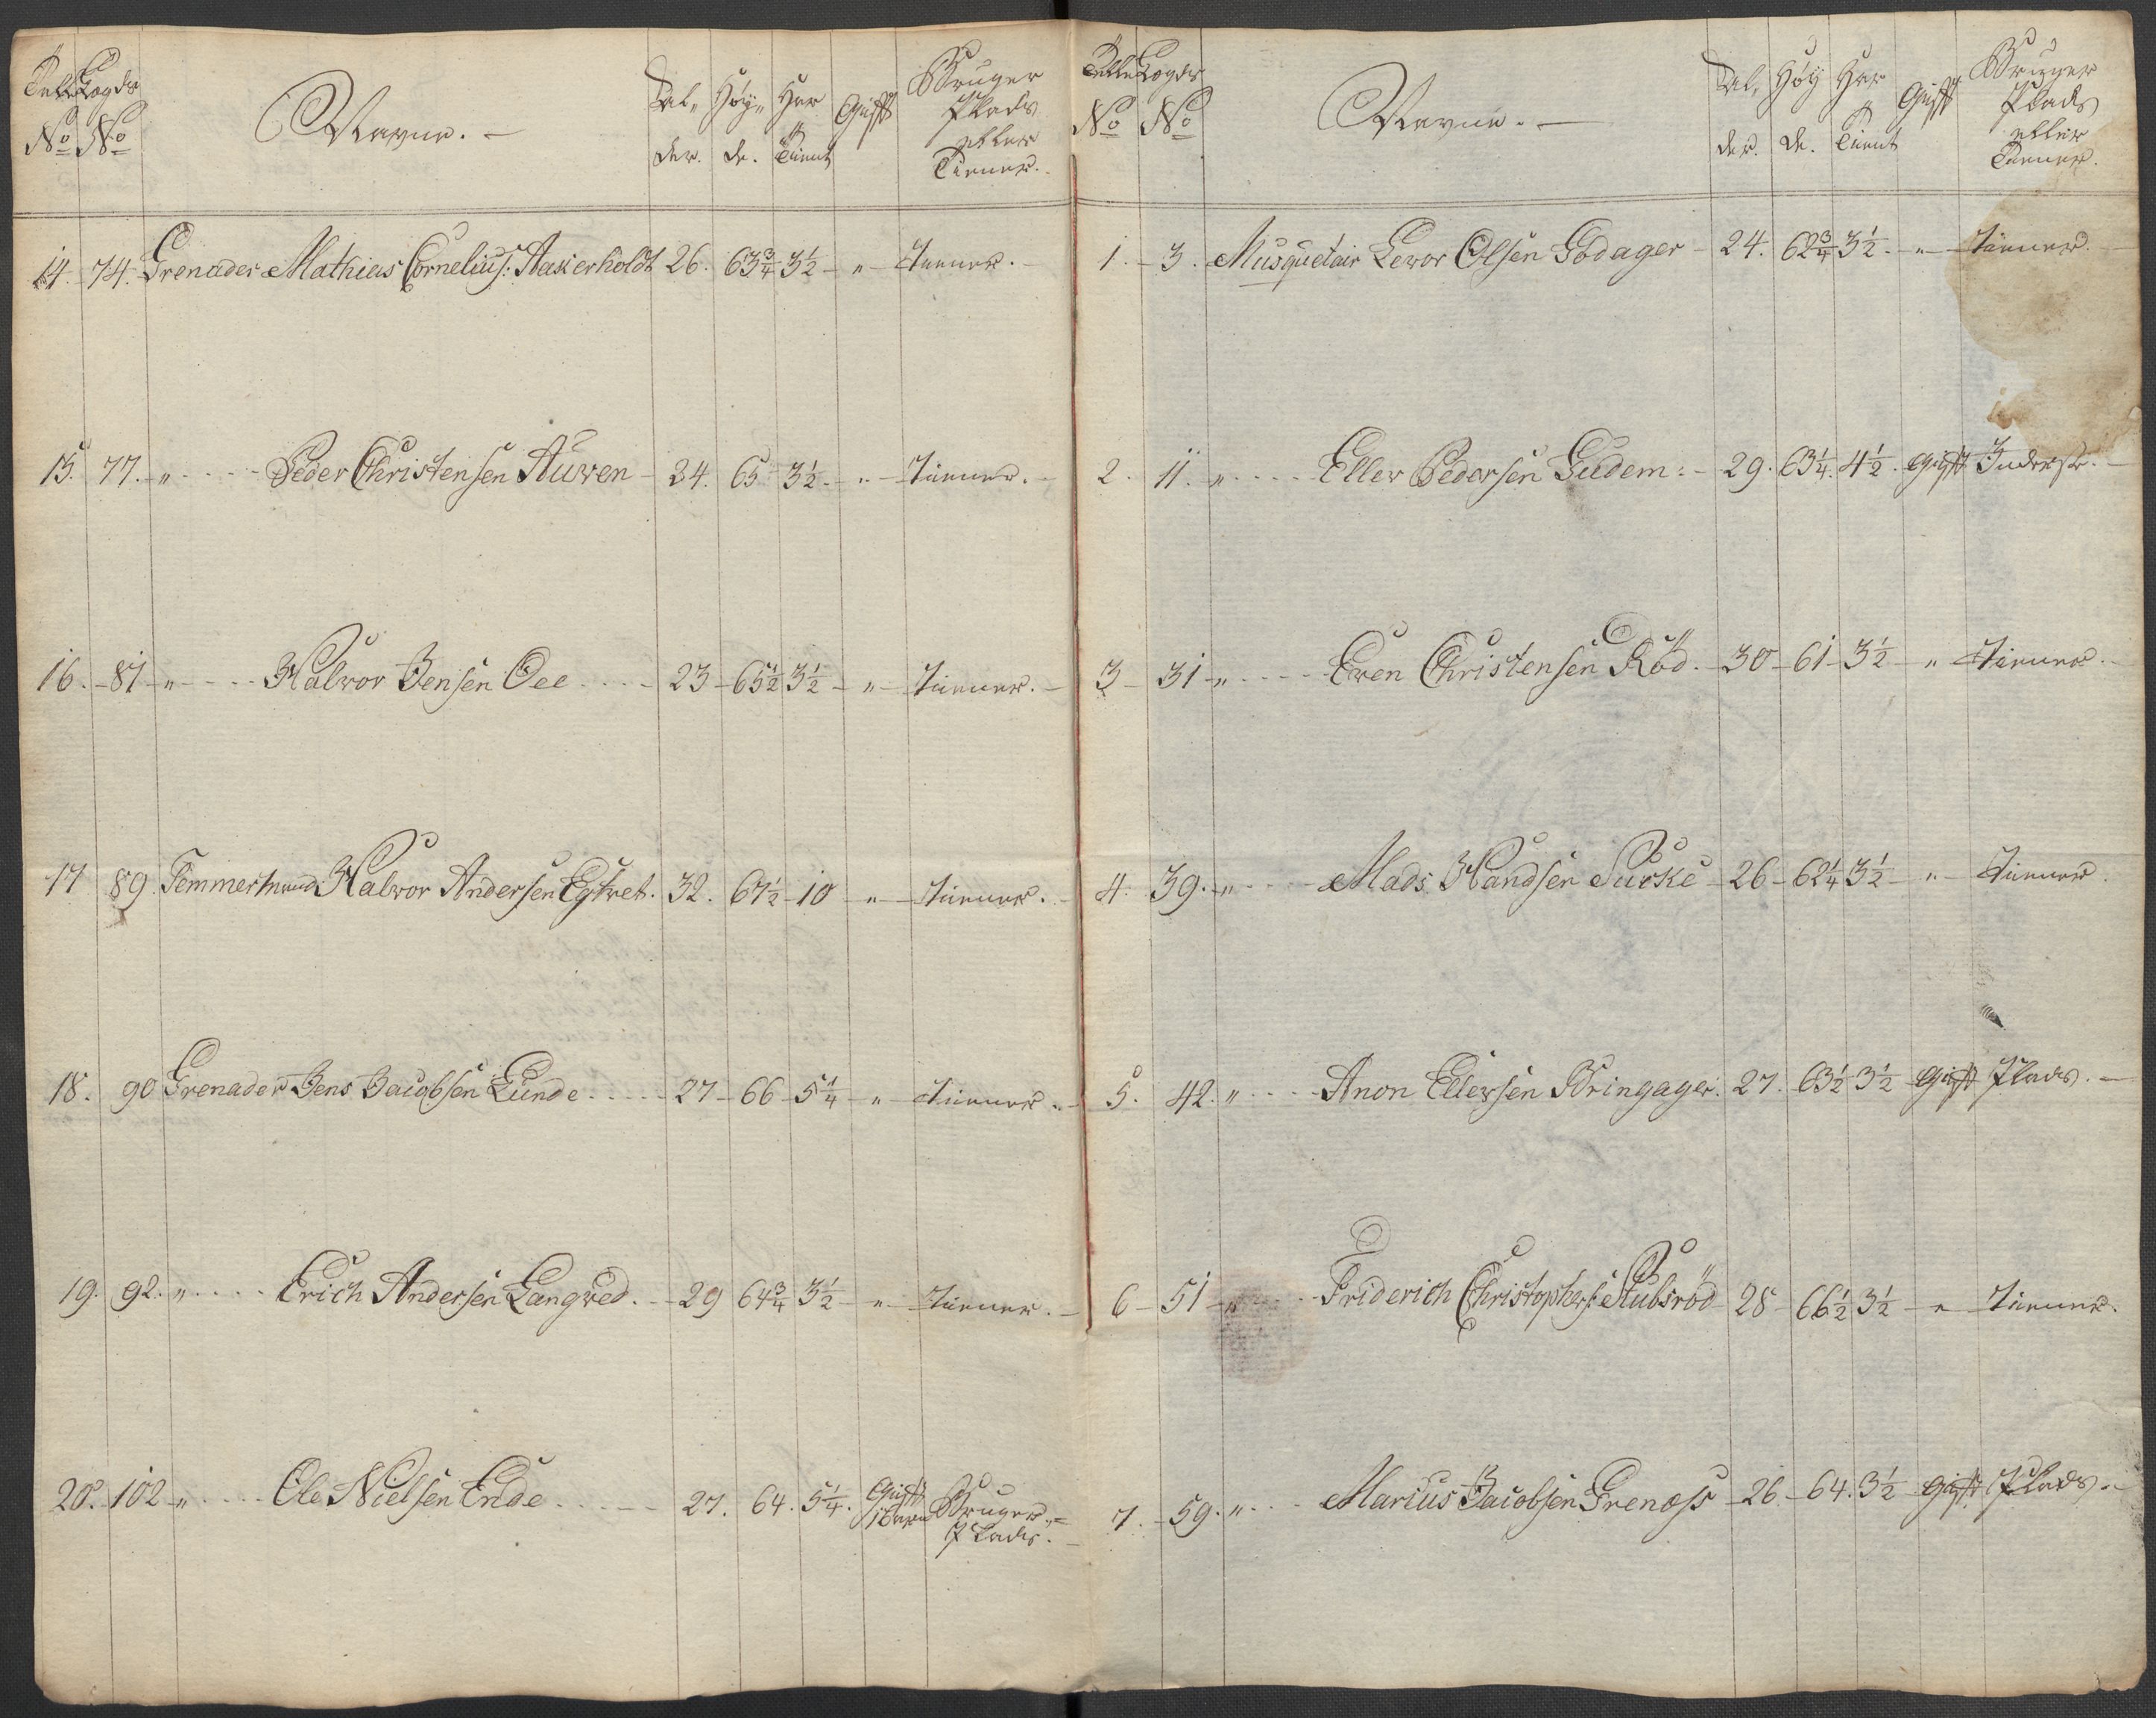 Telle Lægds Navne. — Al, Høy, Har Gift Bruger
No No der. de. tient Plads
eller
Tiener.
14. 74. Grenader Mathias Cornelius: Aaserholdt 26. 63¾ 3½ - „ - Tiener. -
15. 77. „ Peder Christensen Auwen - 24. 65 3½ - „ - Tiener. -
16. 81 „ Halvor Jensen Oee - 23 - 65½ 3½ - „ - Tiener. -
17 89. Temmermand Halvor Andersen Eqtvet. 32. 67½ 10 „ - Tiener. -
18. 90 Grenader Jens Jacobsen Lunde - 27 - 66 - 5¼ - „ - Tiener. -
19. 92. „ Erich Andersen Langved. - 29 64¾ 3½ - „ - Tiener. -
20. 102 „ Ole Nielsen Ende - 27. 64. 5¼. Gift Bruger
1 Barn Plads. -
Telle Lægds Navne. — Al, Høy Har Gift Bruger
No No der. de. tient Plads
eller
Tiener.
1. - 3. Musquetair Lewor Olsen Godager - 24. 62¾ 3½. - „ - Tiener. -
2. 11. „ Eller Pedersen Gudem: - 29. 63¼. 4½. Gift Inderst. -
3 - 31 „ Ewen Christensen Röd. - 30 - 61 - 3½ - „ Tiener. -
4. 39. „ Mads Handsen Purke - 26 - 62¼ 3½ - „ - Tiener.
5. 42. „ Anon Ellewsen Bringager. 27. 63½ 3½ Gift Plads. -
6 - 51 - „ Friderich Christophers: Stubsröd - 28 - 66½ 3½ - „ - Tiener.
7. - 59. „ Marius Jacobsen Grenæss - 26 - 64. 3½ - Gift Plads. -